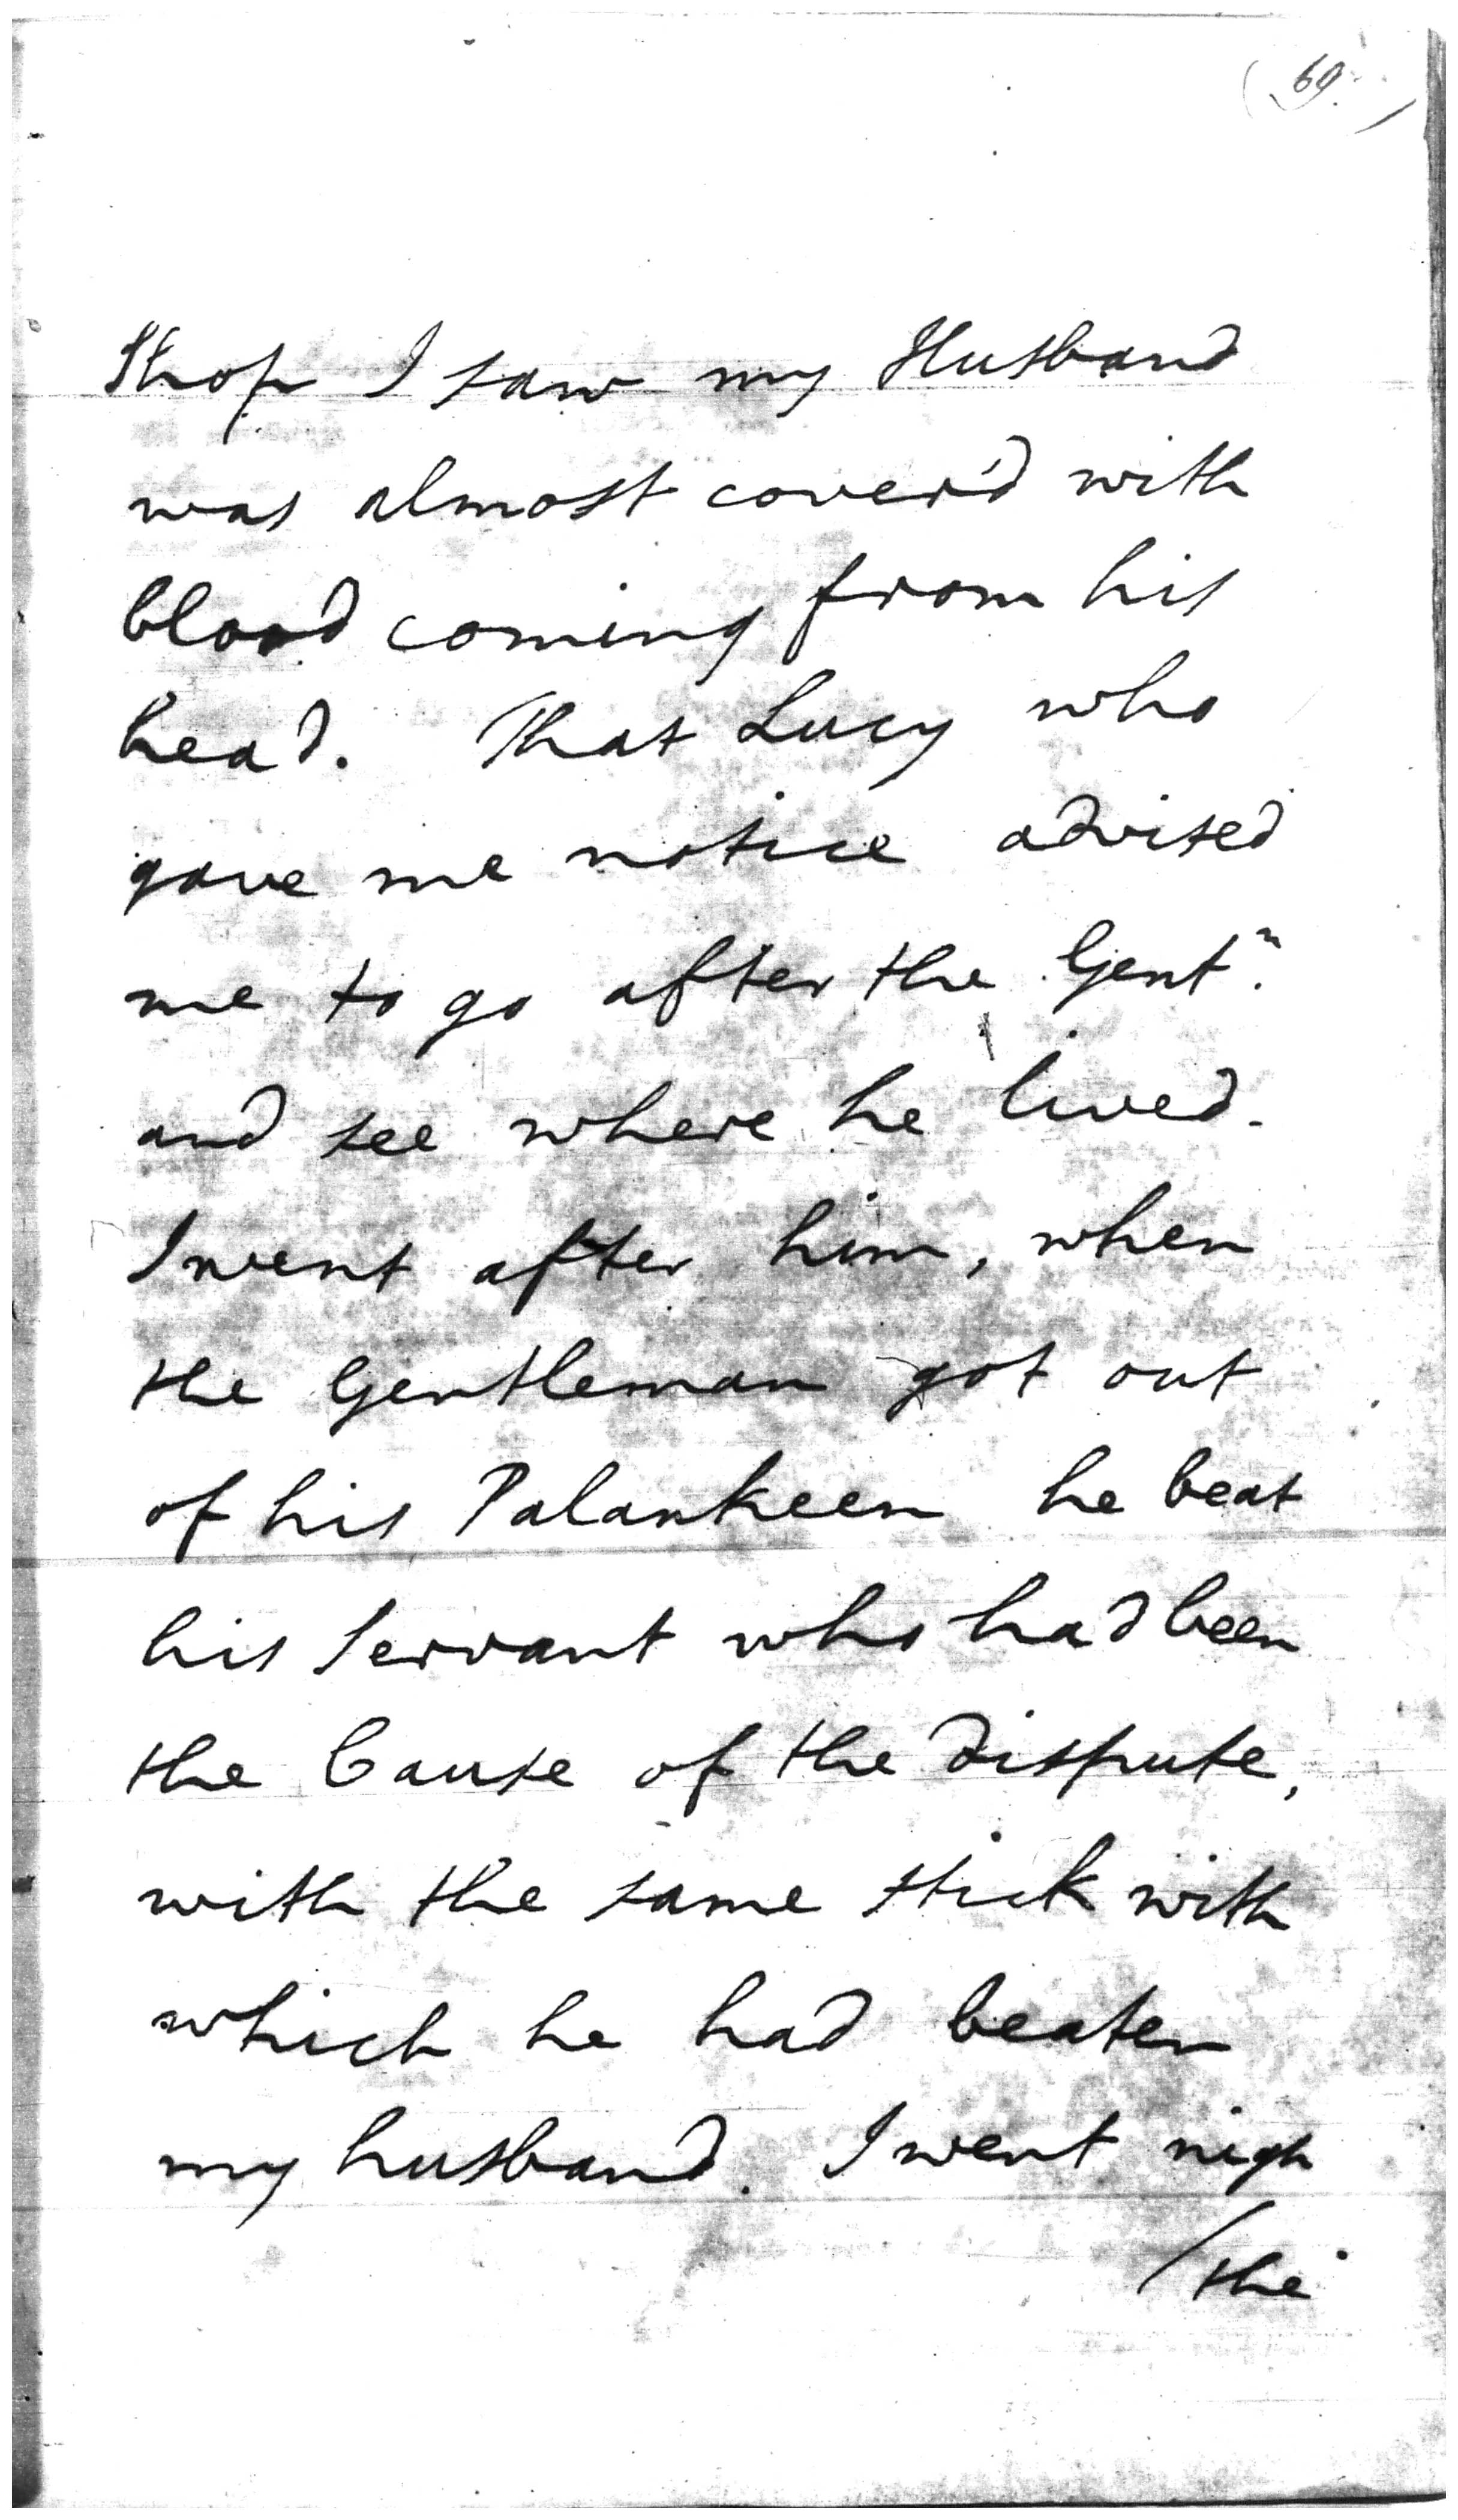 (69.)
Shop I saw my Husband
was almost cover'd with
blood coming from his
head. That Lucy who
gave me notice advised
me to go after the Gent.n
and see where he lived.
I went after him, when
the Gentleman got out
of his Palankeen he beat
his Servant who had been
the Cause of the dispute,
with the same stick with
which he had beaten
my husband. I went nigh
/the